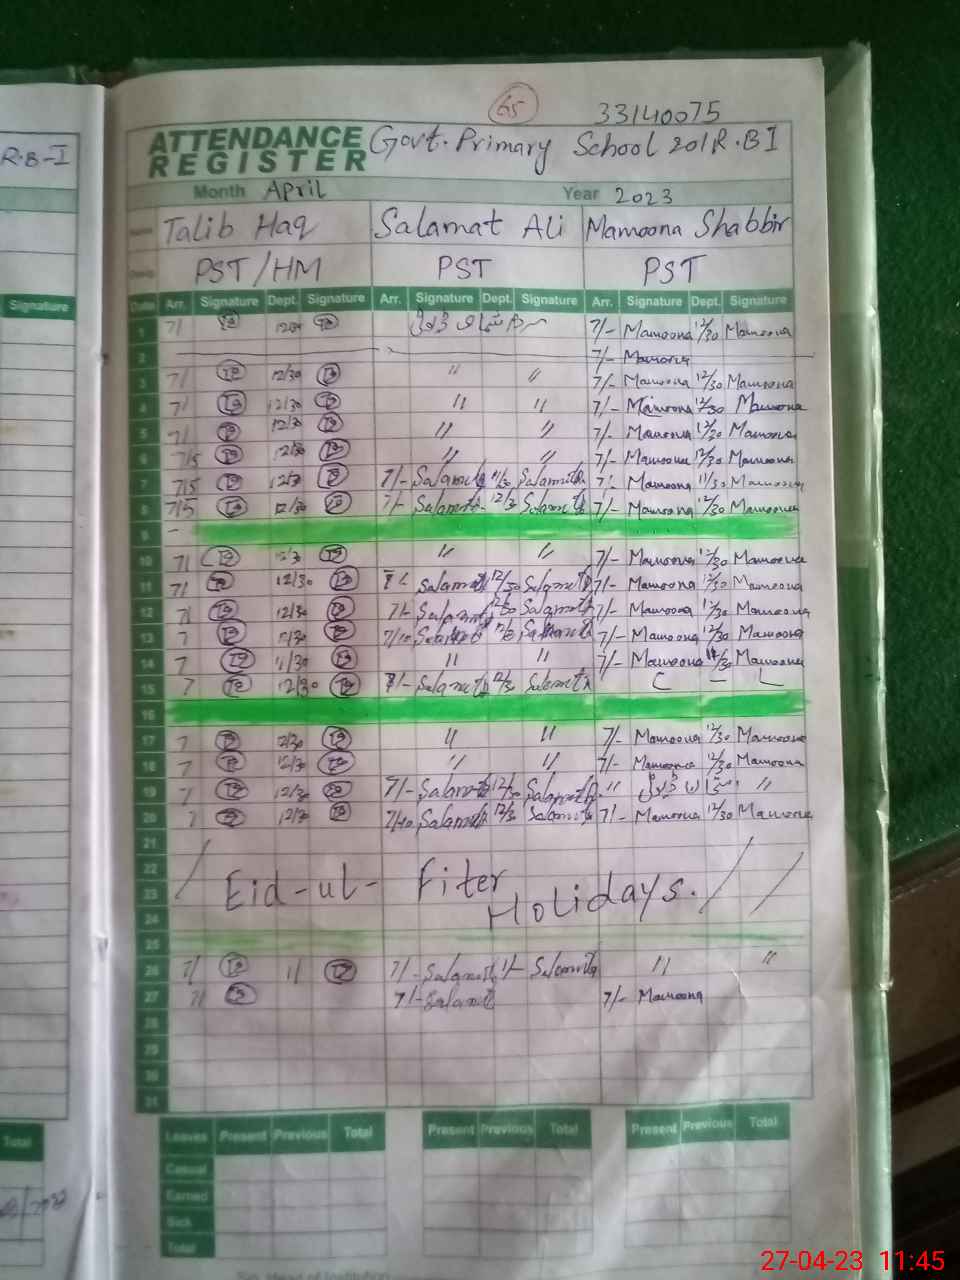 65
33140075
R.B-I
ATTENDANCE REGISTER Govt. Primary School 201R.BI
Month April Year 2023
Name Talib Haq Salamat Ali Mamoona Shabbir
Desig. PST/HM PST PST
Signature
Date Arr. Signature Dept. Signature Arr. Signature Dept. Signature Arr. Signature Dept. Signature
1 7/ 12/30 7/- Mamoona 12/30 Mamoona
2 7/- Mamoona
3 7/ 12/30 〃 〃 7/- Mamoona 12/30 Mamoona
4 7/ 12/30 〃 〃 7/- Mamoona 12/30 Mamoona
5 7/ 12/30 〃 〃 7/- Mamoona 12/30 Mamoona
6 7/5 12/30 〃 〃 7/- Mamoona 12/30 Mamoona
7 7/5 7/- Salamat 11/30 Salamat 7/- Mamoona 11/30 Mamoona
8 7/5 12/30 7/- Salamat 12/30 Salamat 7/- Mamoona 12/30 Mamoona
9
10 7/ 〃 〃 7/- Mamoona 12/30 Mamoona
11 7/ 12/30 Salamat 12/30 Salamat 7/- Mamoona 12/30 Mamoona
12 7/ 12/30 7/- Salamat 12/30 Salamat 7/- Mamoona 12/30 Mamoona
13 7 12/30 7/10 Salamat Salamat 7/- Mamoona 12/30 Mamoona
14 7 11/30 〃 〃 7/- Mamoona 11/30 Mamoona
15 7 12/30 7/- Salamat 12/30 Salamat C L
16
17 7 12/30 〃 〃 7/- Mamoona 12/30 Mamoona
18 7 12/30 〃 〃 7/- Mamoona 12/30 Mamoona
19 7 12/30 7/- Salamat 12/30 Salamat 〃 〃
20 7 12/30 7/10 Salamat 12/30 Salamat 7/- Mamoona 12/30 Mamoona
21
22
23 Eid-ul-Fiter Holidays.
24
25
26 7/ 11 7/- Salamat 1/- Salamat 〃 〃
27 7/ 7/- Salamat 7/- Mamoona
28
29
30
31
Total
Leaves Present Previous Total Present Previous Total Present Previous Total
Casual
Earned
Sick
Total
27-04-23 11:45